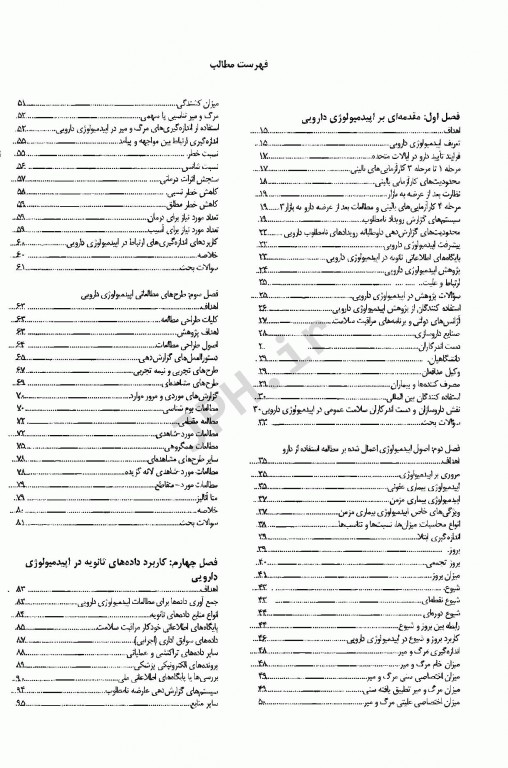 فهرست مطالب
فصل اول: مقدمه‌ای بر اپیدمیولوژی دارویی
اهداف ۱۵
تعریف اپیدمیولوژی دارویی ۱۵
فرایند تأیید دارو در ایالات متحده ۱۷
مرحله ۱ تا مرحله ۳ کارآزمایی‌های بالینی ۱۷
محدودیت‌های کارآزمایی بالینی ۱۸
نظارت بعد از عرضه به بازار ۱۹
مرحله ۴ کارآزمایی‌های بالینی و مطالعات بعد از عرضه دارو به بازار ۱۹
سیستم‌های گزارش رویداد نامطلوب ۱۹
محدودیت‌های گزارش‌دهی داوطلبانه رویدادهای نامطلوب دارویی ۲۲
پیشرفت اپیدمیولوژی دارویی ۲۲
پایگاه‌های اطلاعاتی ثانویه در اپیدمیولوژی دارویی ۲۳
پژوهش اپیدمیولوژی دارویی ۲۴
ارتباط و علیت ۲۵
سؤالات پژوهش در اپیدمیولوژی دارویی ۲۵
استفاده کنندگان از پژوهش اپیدمیولوژی دارویی ۲۶
آژانس‌های دولتی و برنامه‌های مراقبت سلامت ۲۷
صنایع داروسازی ۲۸
دست اندرکاران ۲۰
دانشگاهیان ۲۹
وکیل مدافعان ۲۹
مصرف کننده‌ها و بیماران ۲۹
استفاده کنندگان بین المللی ۳۰
نقش داروسازان و دست اندرکاران سلامت عمومی در اپیدمیولوژی دارویی ۳۰
سوالات بحث ۳۲
فصل دوم: اصول اپیدمیولوژی اعمال شده بر مطالعه استفاده از دارو
اهداف ۳۵
مروری بر اپیدمیولوژی ۳۵
اپیدمیولوژی بیماری عفونی ۳۵
اپیدمیولوژی بیماری مزمن ۳۷
ویژگی‌های خاص اپیدمیولوژی بیماری مزمن ۳۷
انواع محاسبات میزان‌ها، نسبت‌ها و تناسب‌ها ۳۸
اندازه‌گیری ابتلا ۳۹
بروز ۳۹
بروز تجمعی ۴۰
میزان بروز ۴۱
شیوع ۴۳
شیوع نقطه‌ای ۴۳
شیوع دوره‌ای ۴۴
رابطه بین بروز و شیوع ۴۴
کاربرد بروز و شیوع در اپیدمیولوژی دارویی ۴۶
اندازه‌گیری مرگ و میر ۴۸
میزان خام مرگ و میر ۴۸
میزان اختصاصی سنی مرگ و میر ۴۹
میزان مرگ و میر تطبیق یافته سنی ۴۹
میزان اختصاصی علیتی مرگ و میر ۵۰
میزان کشندگی ۵۱
مرگ و میر تناسبی یا سهمی ۵۲
استفاده از اندازه‌گیری‌های مرگ و میر در اپیدمیولوژی دارویی ۵۲
اندازه‌گیری ارتباط بین مواجهه و پیامد ۵۵
نسبت خطر ۵۵
نسبت شانس ۵۶
سنجش اثرات درمانی ۵۷
کاهش خطر نسبی ۵۸
کاهش خطر مطلق ۵۹
تعداد مورد نیاز برای درمان ۵۹
تعداد مورد نیاز برای آسیب ۵۹
کاربردهای اندازه‌گیری‌های ارتباط در اپیدمیولوژی دارویی ۶۰
خلاصه ۶۰
سوالات بحث ۶۱
فصل سوم: طرح‌های مطالعاتی اپیدمیولوژی دارویی
اهداف ۶۳
کلیات طراحی مطالعه ۶۳
اهداف پژوهش ۶۳
اصول طراحی مطالعات ۶۴
دستورالعمل‌های گزارش‌دهی ۶۵
طرح‌های تجربی و نیمه تجربی ۶۷
طرح‌های مشاهده‌ای ۶۹
گزارش‌های موردی و مرور موارد ۷۰
مطالعات بوم شناسی ۷۰
مطالعات مقطعی ۷۲
مطالعات مورد-شاهدی ۷۲
مطالعات همگروهی ۷۵
سایر طرح‌های مشاهده‌ای ۷۸
مطالعات مورد-شاهدی لانه گزیده ۷۸
مطالعات مورد-متقاطع ۷۹
متا آنالیز ۷۹
خلاصه ۸۰
سوالات بحث ۸۱
فصل چهارم: کاربرد داده‌های ثانویه در اپیدمیولوژی
دارویی
اهداف ۸۳
جمع آوری داده‌ها برای مطالعات اپیدمیولوژی دارویی ۸۳
انواع منابع داده‌های ثانویه ۸۴
پایگاه‌های اطلاعاتی خودکار مراقبت سلامت ۸۵
داده‌های سوابق اداری (اجرایی) ۸۷
سایر داده‌های تراکنشی و عملیاتی ۸۸
پرونده‌های الکترونیکی پزشکی ۸۹
بررسی‌ها یا پایگاه‌های اطلاعاتی ملی ۹۰
سیستم‌های گزارش‌دهی عارضه نامطلوب ۹۴
سایر منابع ۹۵